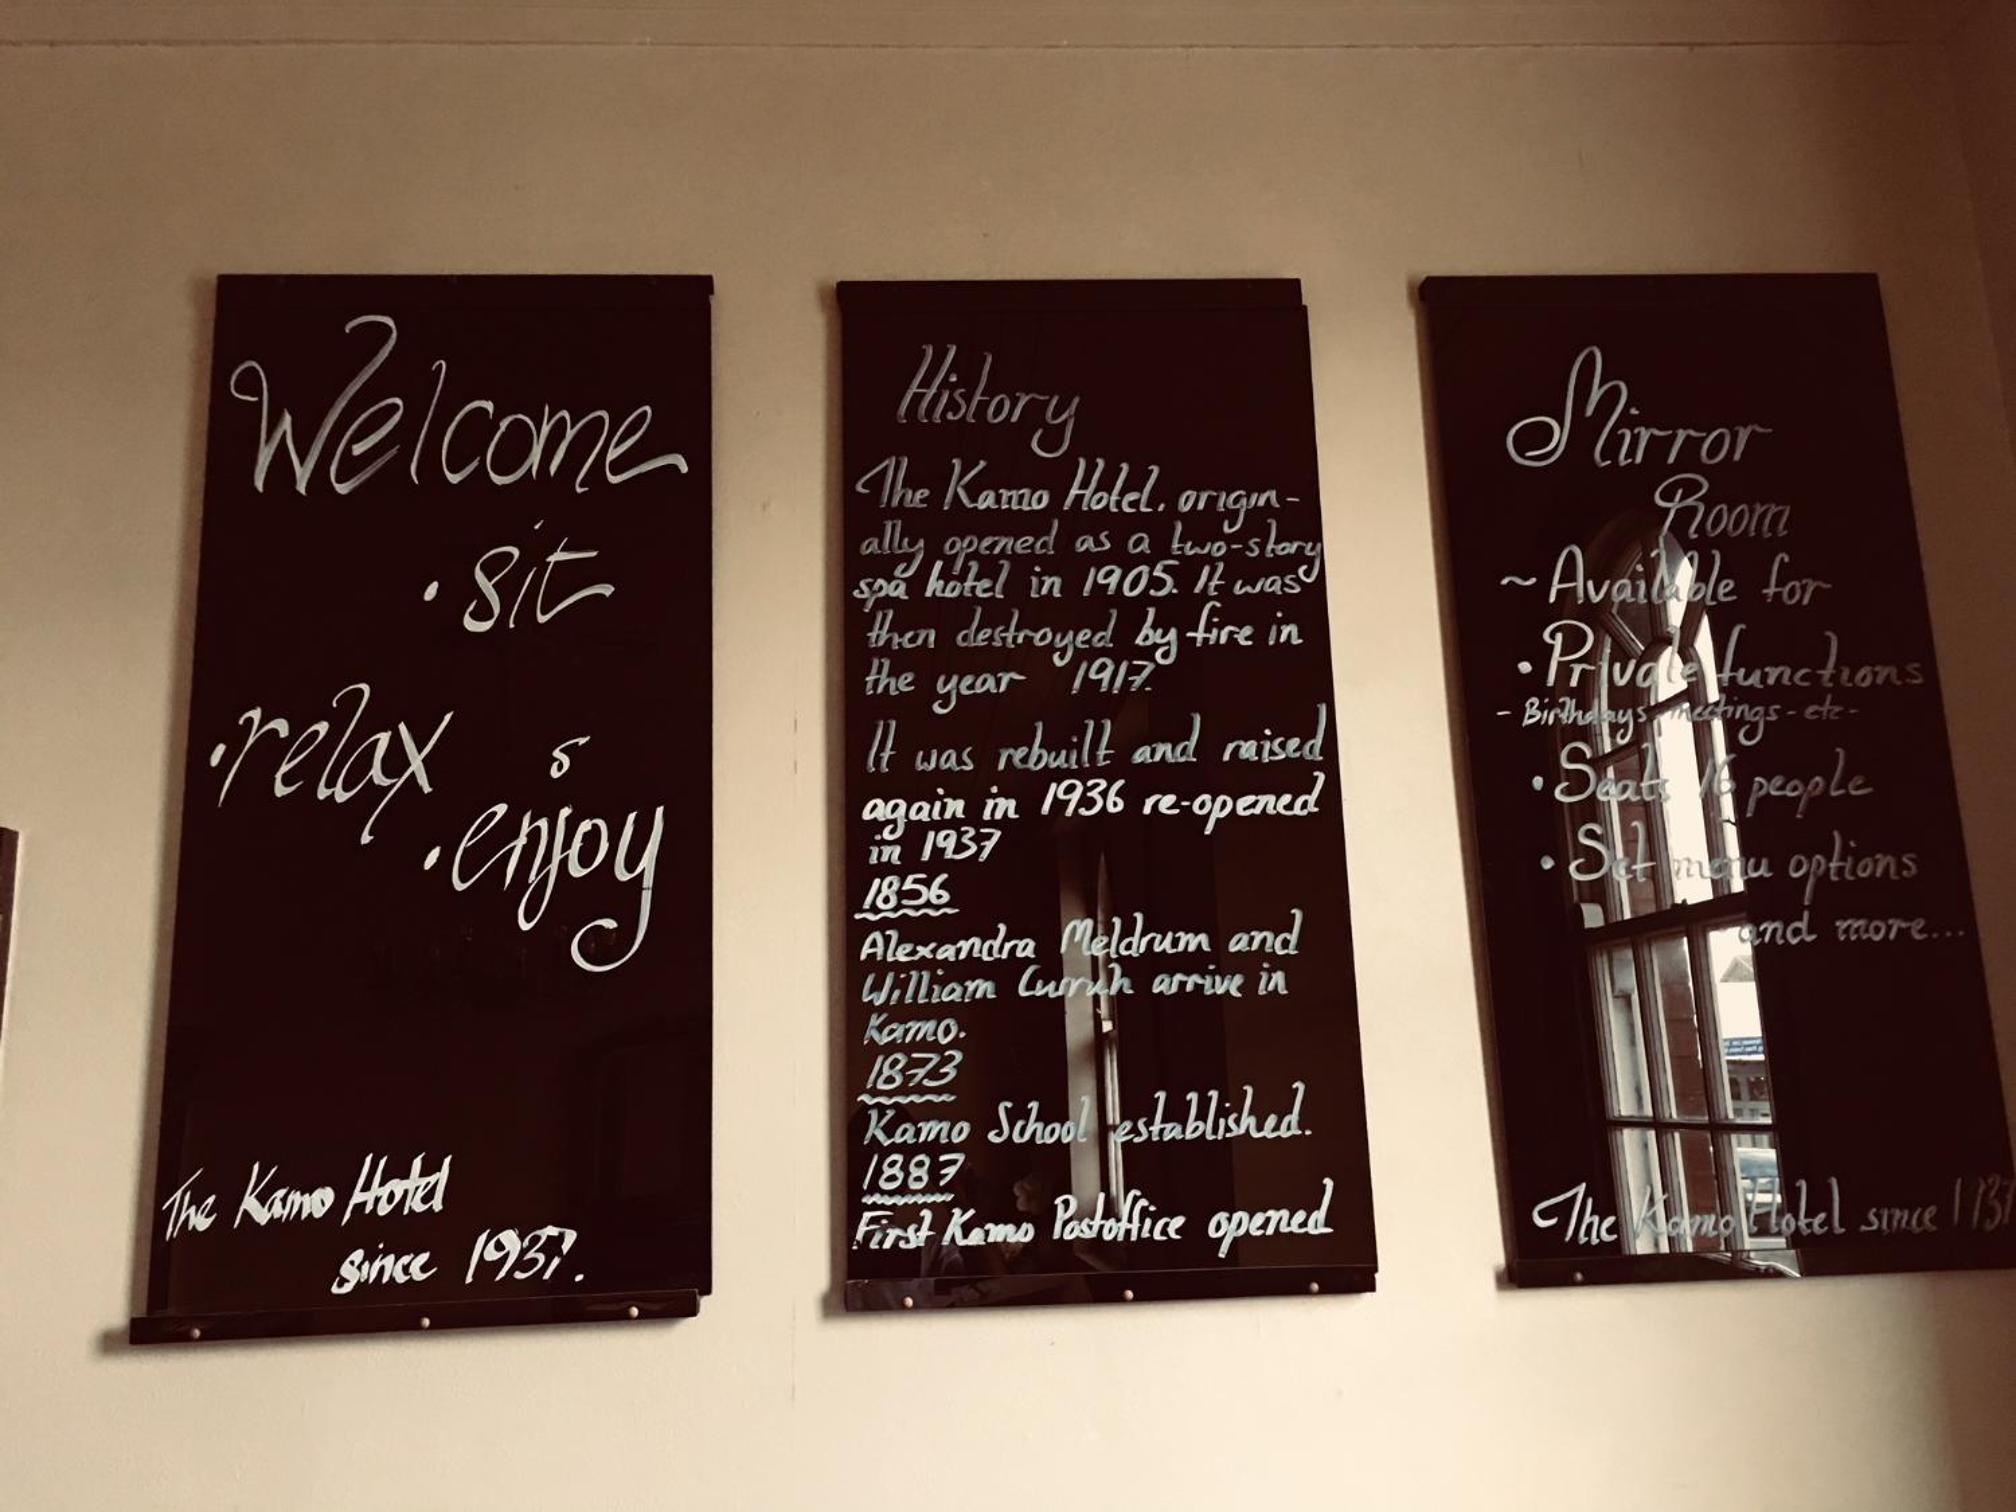 Welcome
• sit
• relax &
• enjoy
The Kamo Hotel
since 1937.
History
The Kamo Hotel. origin-
ally opened as a two-story
spa hotel in 1905. It was
then destroyed by fire in
the year 1917.
It was rebuilt and raised
again in 1936 re-opened
in 1937
1856
Alexandra Meldrum and
William Curruh arrive in
Kamo.
1873
Kamo School established.
1887
First Kamo Postoffice opened
Mirror
Room
~ Available for
• Private functions
- Birthdays - meetings - etc -
• Seats 16 people
• Set menu options
and more...
The Kamo Hotel since